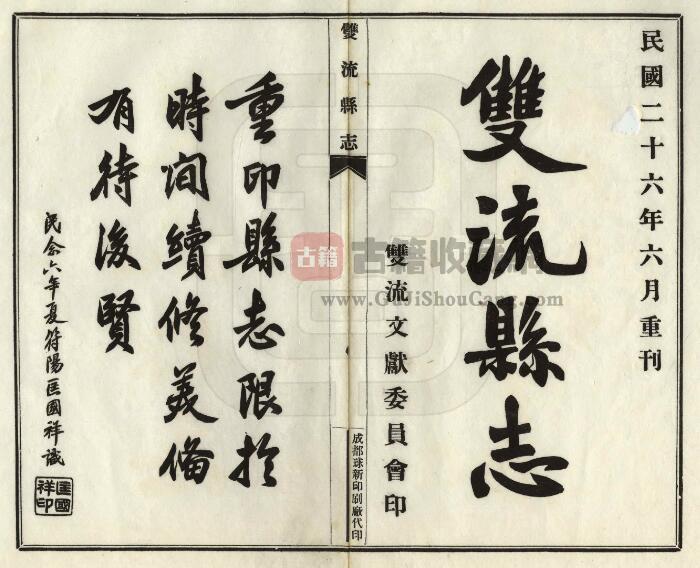 民國二十六年六月重刊
雙流縣志
雙流文獻委員會印
雙流縣志
成都球新印刷廠代印
重印縣志限於
時间續修美備
有待後賢
民廿六年夏符陽匡國祥識
匡國祥印
古籍
古籍收藏网
www.GuJiShouCang.com